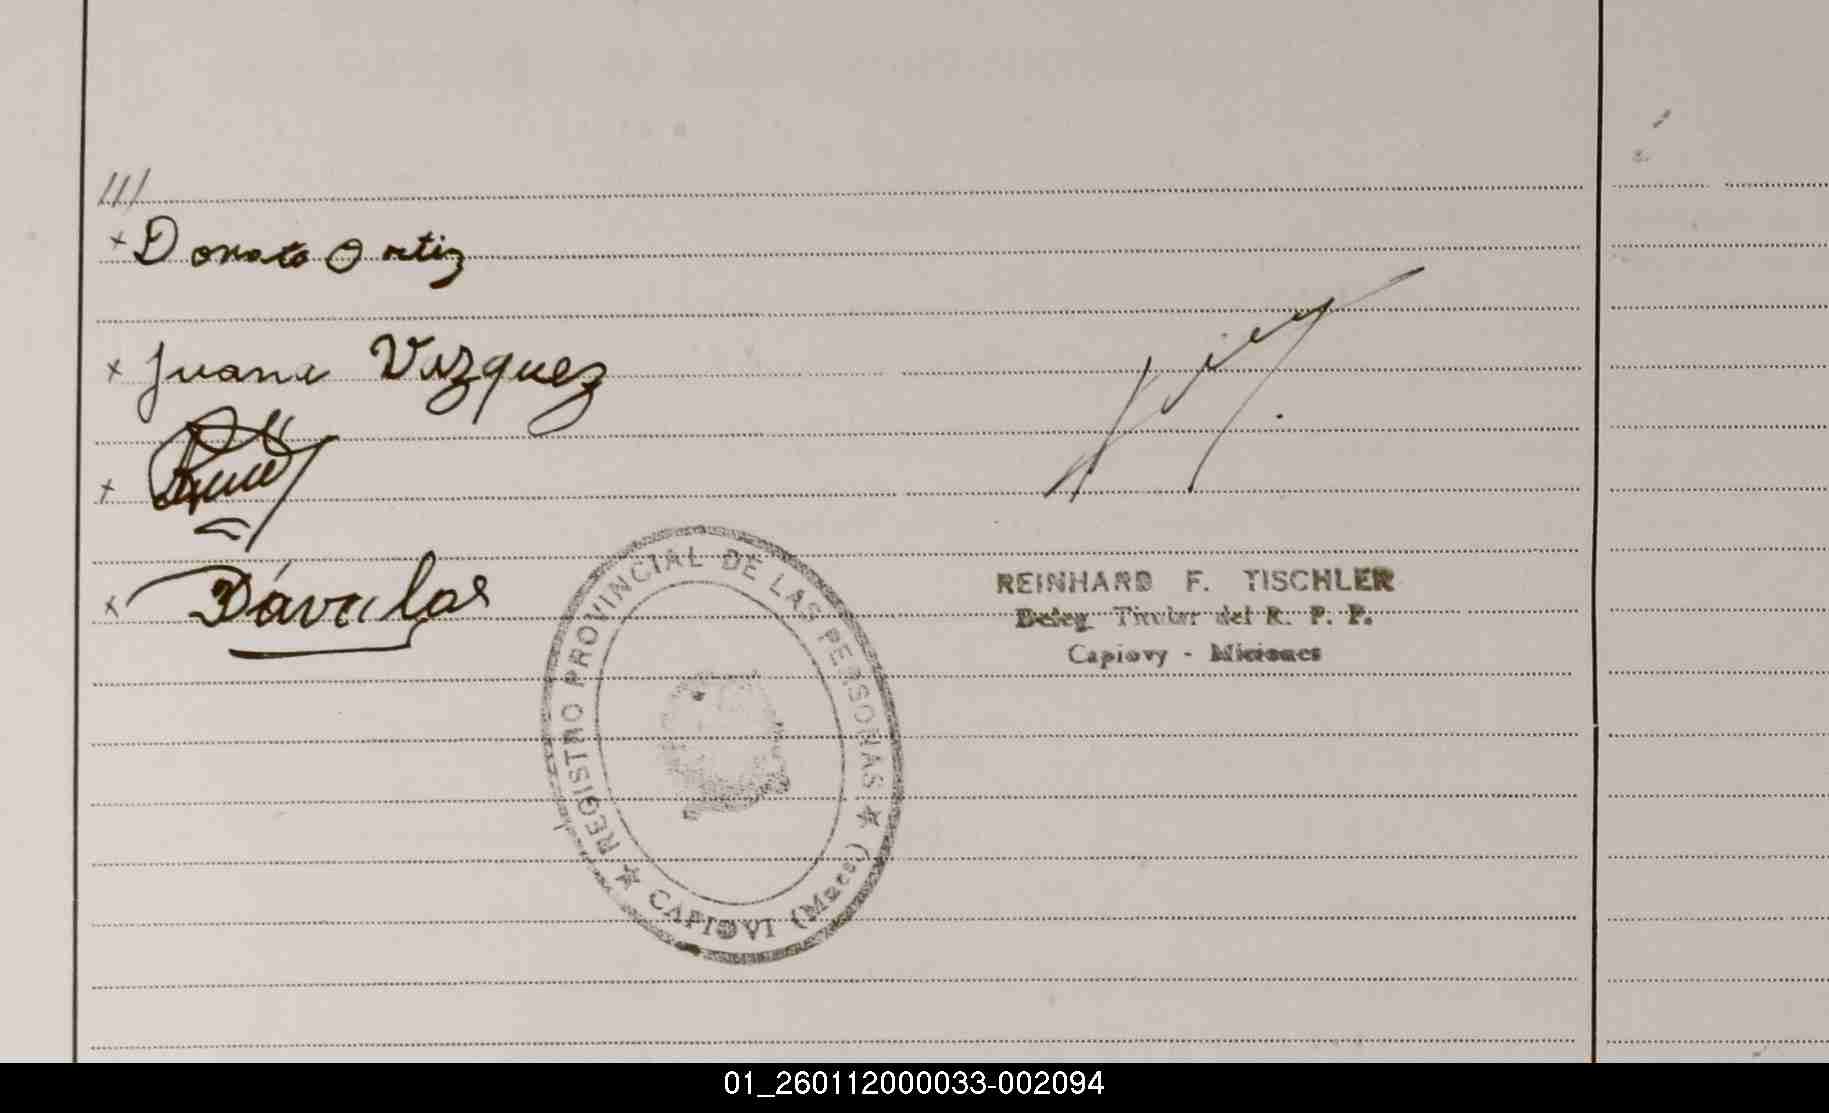 ///
x Donato Ortiz
x Juana Vazquez
x
x Dávalos
REGISTRO PROVINCIAL DE LAS PERSONAS ★ CAPIOVI (Mnes.) ★
REINHARD F. TISCHLER
Deleg. Titular del R. P. P.
Capiovy - Misiones
01_260112000033-002094